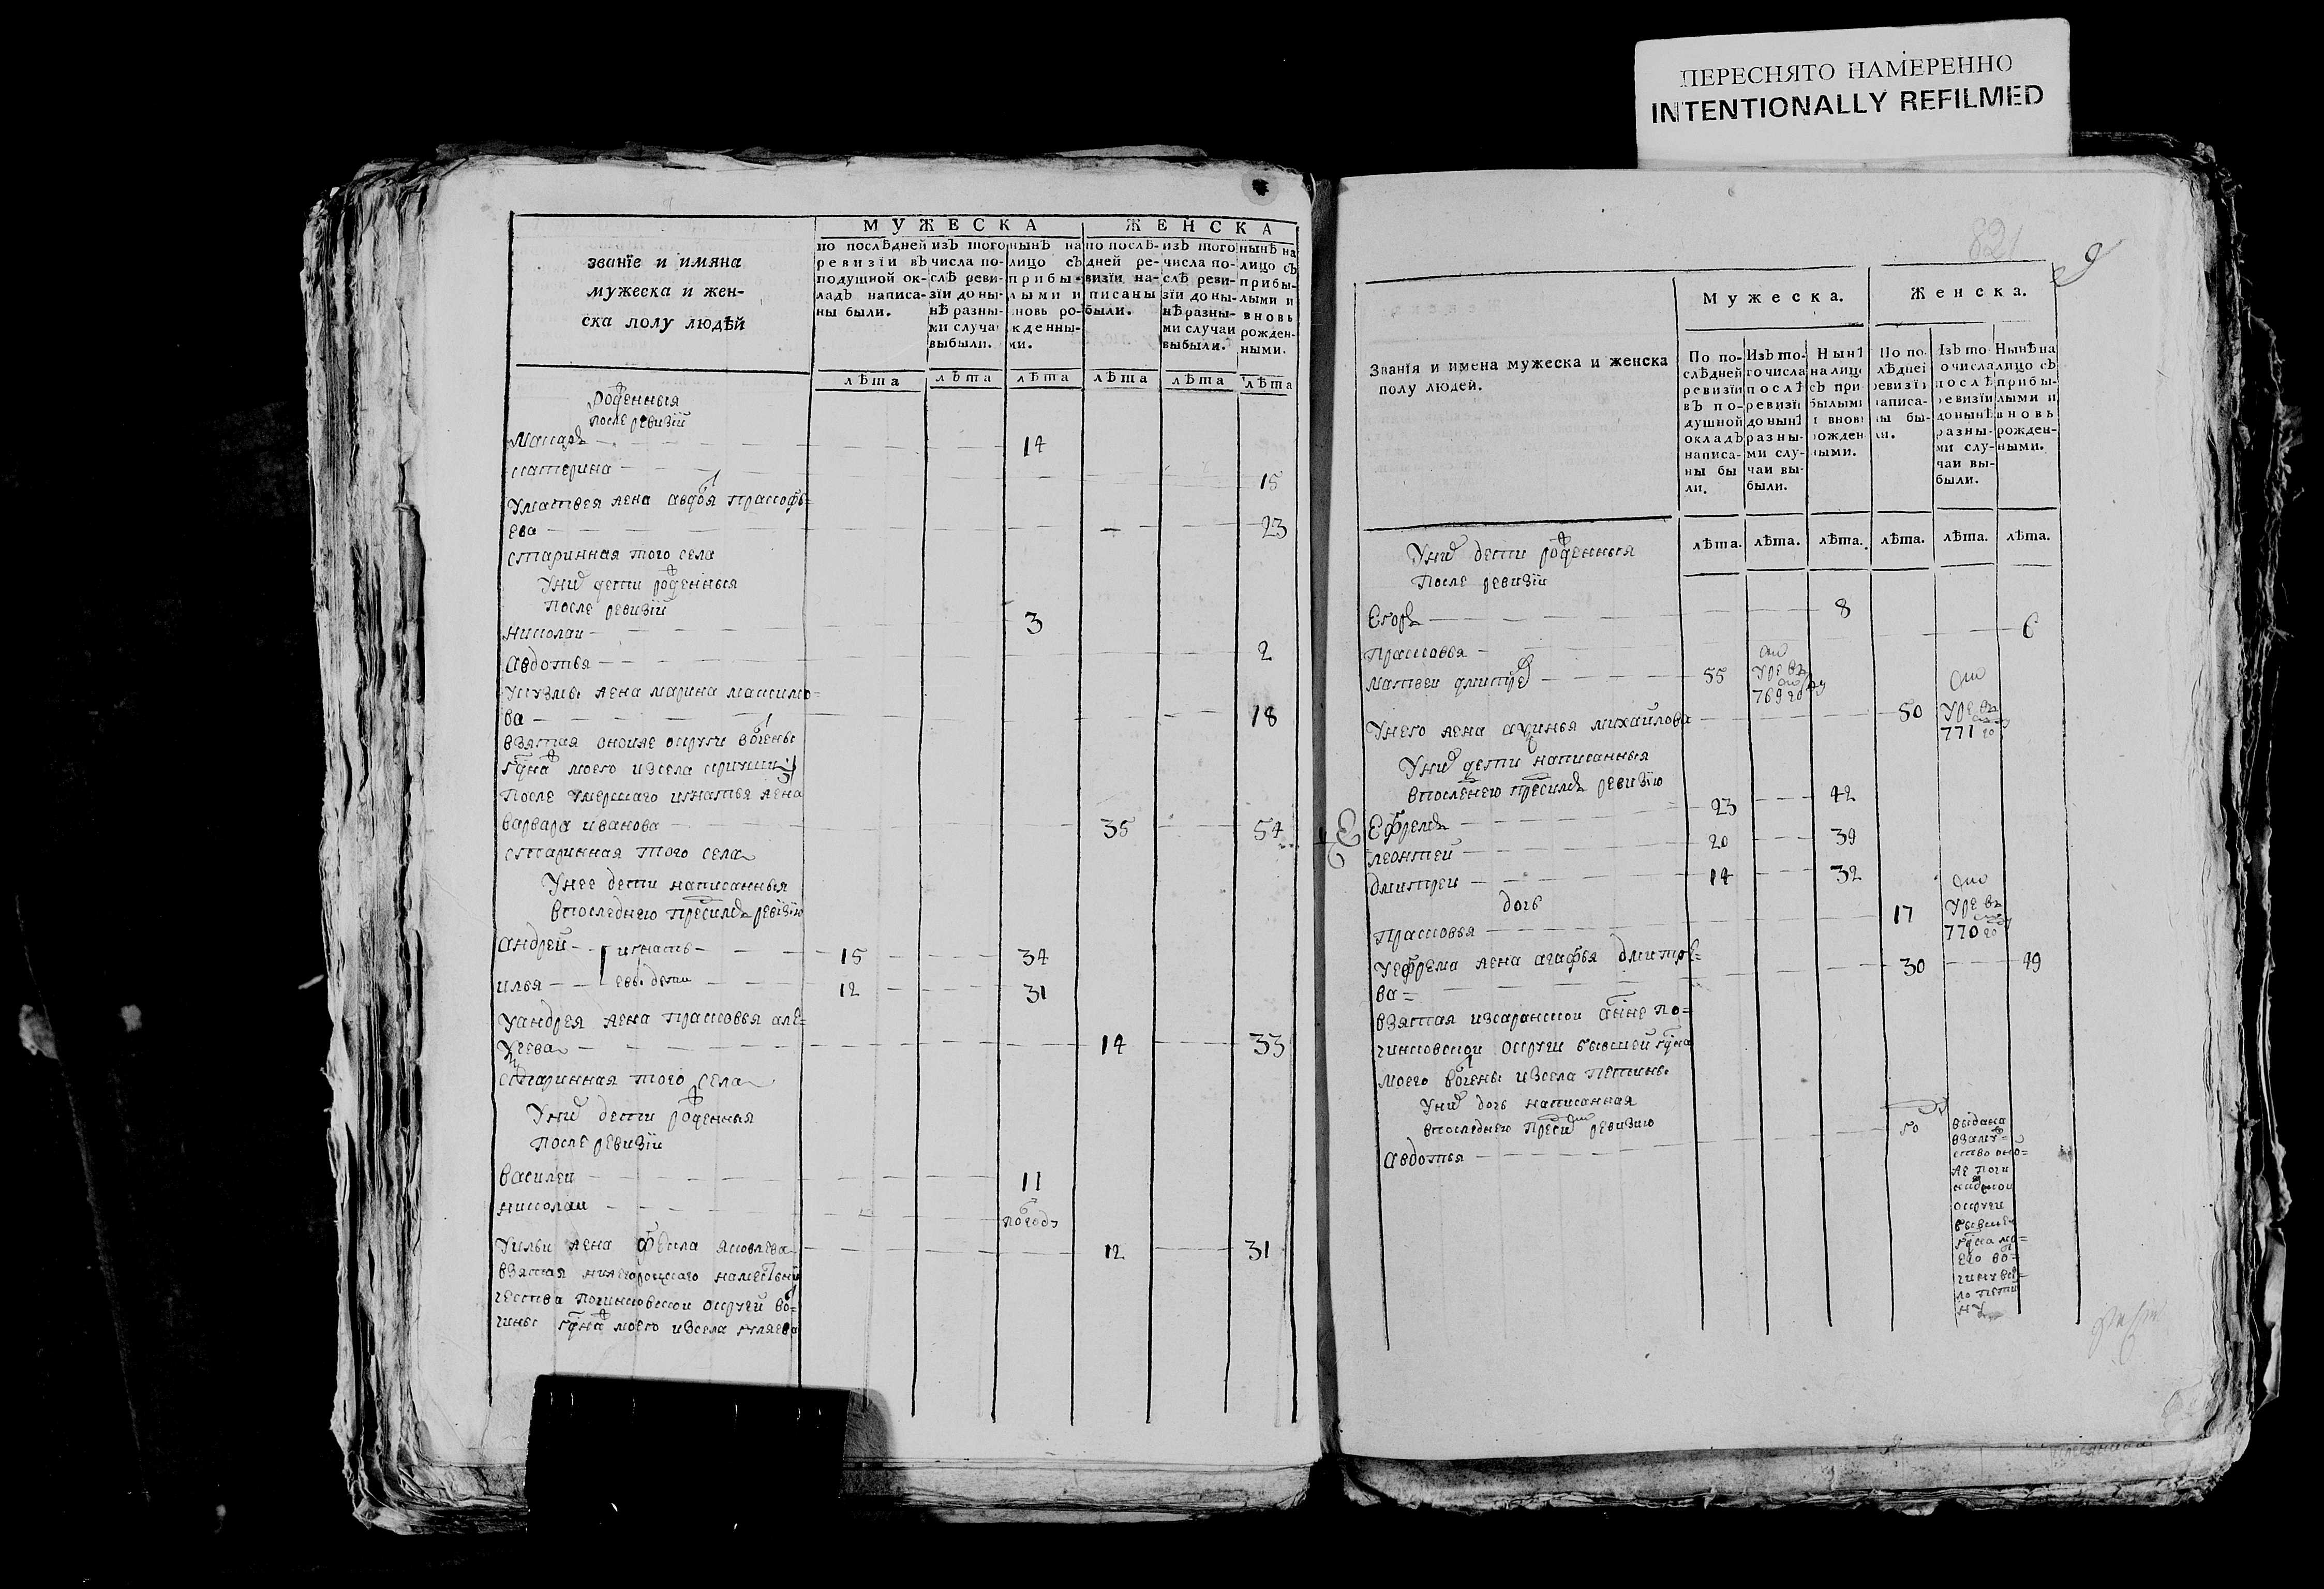 ПЕРЕСНЯТО НАМЕРЕННО
INTENTIONALLY REFILMED
званїе и имяна
мужеска и жен-
ска полу людѣй
МУЖЕСКА
ЖЕНСКА
по послѣдней
ревизїи въ
подушной ок-
ладъ написа-
ны были.
изъ того
числа по-
слѣ реви-
зїи до ны-
нѣ разны-
ми случаи
выбыли.
нынѣ на
лицо съ
прибы-
лыми и
вновь ро-
жденны-
ми.
по послѣ-
дней ре-
визїи на-
писаны
были.
изъ того
числа по-
слѣ реви-
зїи до ны-
нѣ разны-
ми случаи
выбыли.
нынѣ на
лицо съ
прибы-
лыми и
вновь
рожден-
ными.
лѣта лѣта лѣта лѣта лѣта лѣта
рожденныя
после ревизїй
макаръ 14
катерина 15
у матвея жена авдотья прокофь=
ева 23
старинная того села
у них дети рожденныя
после ревизїй
николаи 3
авдотья 2
у кузмы жена марина максимо=
ва 18
взятая
моего из села
после умершаго игнатья жена
варвара иванова 35 54
старинная того села
у нее дети написанныя
в последнею пред сим ревизїю
андрей игнать- 15 34
илья евы дети 12 31
у андрея жена прасковья але=
ѯеева 14 33
старинная того села
у них дети рожденныя
после ревизїи
василей 11
николаи полгода
у ильи жена фекла яковлева 12 31
взятая нижегороцкаго наместни
чества починковской округи во=
чины гдна моего из села
821
Званїя и имена мужеска и женска
полу людей.
Мужеска.
Женска.
По по-
слѣдней
ревизїи
въ по-
душной
окладъ
написа-
ны бы
ли.
Изъ то-
го числа
послѣ
ревизїи
до нынѣ
разны-
ми слу-
чаи вы-
были.
Нынѣ
на лицо
съ при
былыми
и вновь
рожден
ными.
По по-
слѣдней
ревизїи
написа-
ны бы-
ли.
Изъ то
го числа
послѣ
ревизїи
до нынѣ
разны-
ми слу-
чаи вы-
были.
Нынѣ на
лицо съ
прибы-
лыми и
вновь
рожден-
ными.
лѣта. лѣта. лѣта. лѣта. лѣта. лѣта.
у них дети рожденныя
после ревизїи
Егоръ 8
прасковья 6
матвеи дмитрев 55 умре въ 769 го
у него жена аѯинья михайлова 50 умре въ 771 го
у них дети написанныя
в последнею пред сим ревизїю
Ефремъ 23 42
леонтей 20 39
дмитреи 14 32
дочь
прасковья 17 умре въ 770 го
у ефрема жена агафья дмитре=
ва= 30 49
взятая из саранской а ныне по=
чинковской округи бывшей гдна
моего вочены из села
у них дочь написанная
в последнею пред сим ревизию
авдотья
выдана
в замуж=
ство
округи
бывшей
гдна мо=
его во=
чину в се=
ло